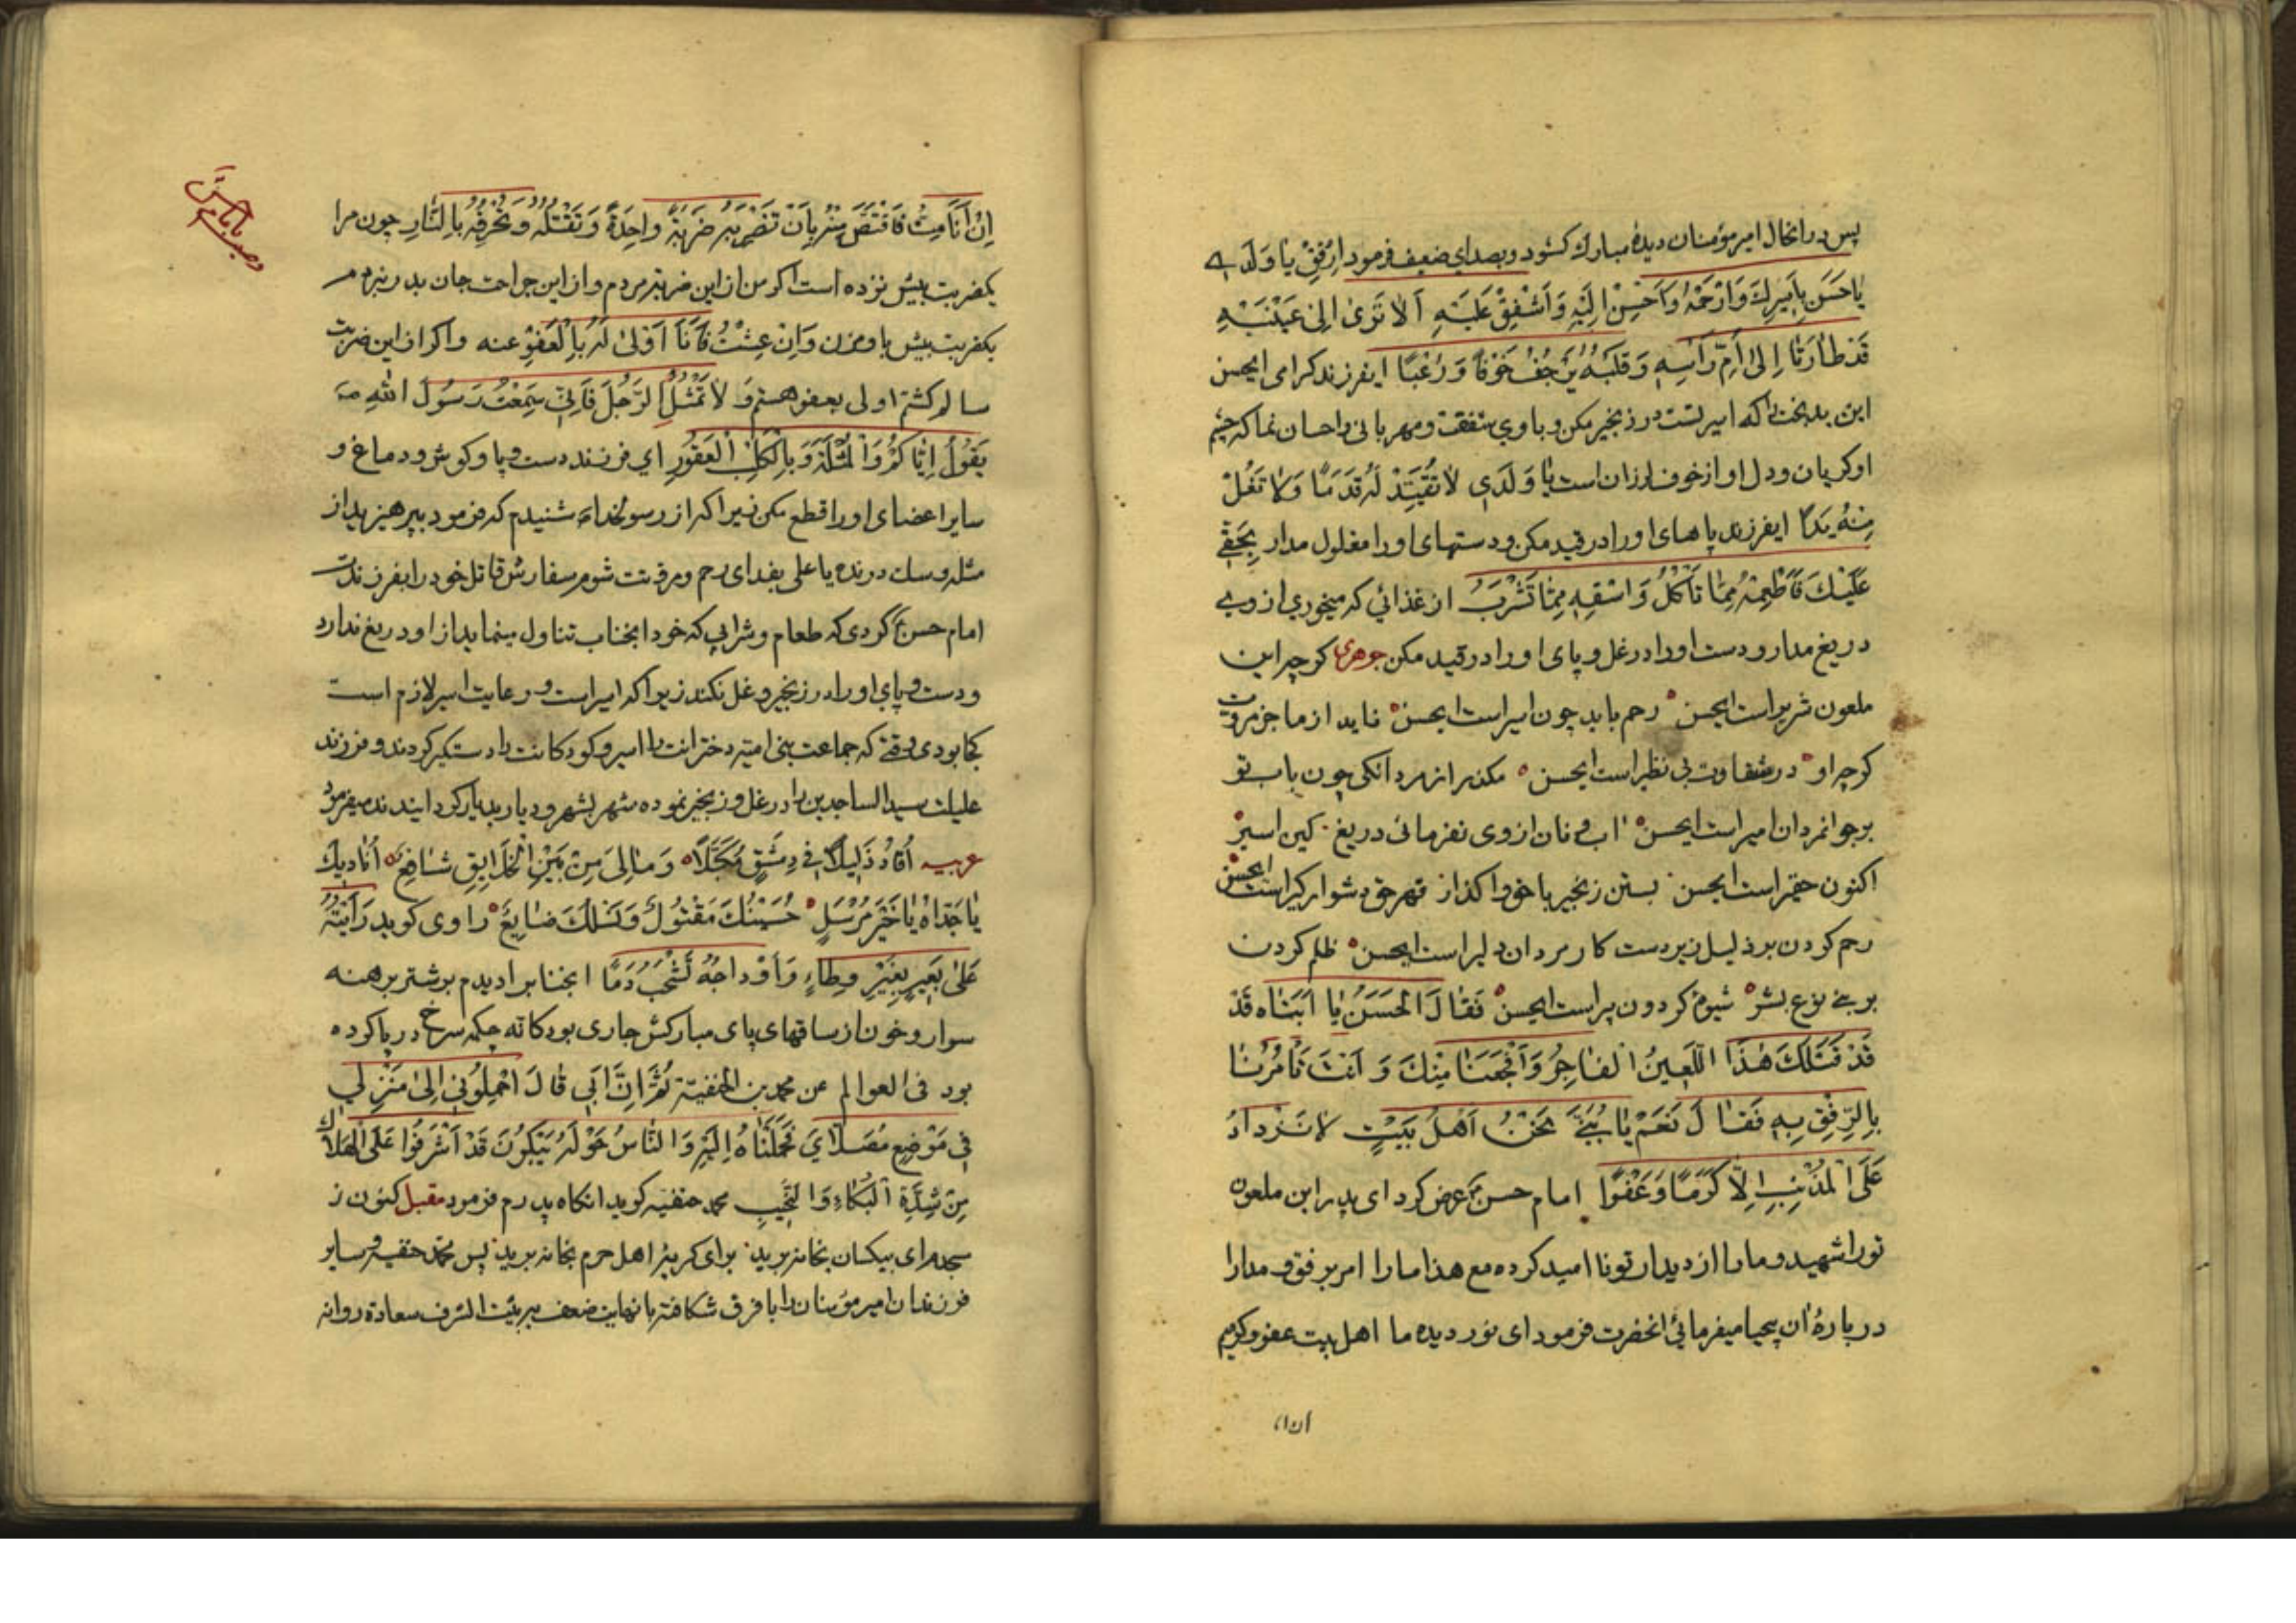 پس درانحال امیرمؤمنان دیدهٔ مبارك كشود وبصدای ضعیف فرمود اِرْفِقْ یٰا وَلَدٖی
یٰا حَسَن بِاَسٖیرِكَ وَارْحَمْهُ وَاَحْسِنْ اِلَیْهِ وَاَشْفِقْ عَلَیْهِ اَلاٰ تَرٰی اِلیٰ عَیْنَیْهِ
قَدْ طٰارَتٰا اِلیٰ اُمِّ رَاْسِهِ وَقَلْبُهُ یَرْجُفُ خَوْفًا وَرُعْبًا ایفرزند كرامی ایحسن
این بدبخت را كه اسیر تست در زنجیر مكن و با وی شفقت و مهربانی واحسان نما كه چشم
او كریان ودل او از خوف لرزان است یٰا وَلَدٖی لاٰ تُقَیِّدْ لَهُ قَدَمًا وَلاٰ تَغُلَّ
مِنْهُ یَدًا ایفرزند پاهای اورا در قید مكن و دستهای اورا مغلول مدار بِحَقّٖی
عَلَیْكَ فَاَطْعِمْهُ مِمّٰا تَأْكُلُ وَاسْقِهِ مِمّٰا تَشْرَبُ از غذائی كه میخوری از وی
دریغ مدار و دست اورا در غل و پای اورا در قید مكن جوهری كو چه این
ملعون شریر است ایحسن رحم باید چون اسیر است ایحسن ناید از ما جز مروت
كرچه او در شقاوت بی نظیر است ایحسن مكذر از مردانكی چون باب تو
بر جوانمردان امیر است ایحسن اب و نان از وی نفرمائی دریغ كین اسیر
اكنون حقیر است ایحسن بستن زنجیر با حق واكذار قهر حق دشوار كیر است ایحسن
رحم كردن بر ذلیل زیردست كار مردان دلیر است ایحسن ظلم كردن
بر بنی نوع بشر شیوهٔ كردون پیر است ایحسن فَقٰالَ الْحَسَنُ یٰا اَبَتٰاه قَدْ
قَدْ قَتَلَكَ هٰذَا اللَّعٖینُ الْفٰاجِرُ وَاَفْجَعَنٰا مِنْكَ وَ اَنْتَ تَأْمُرُنٰا
بِالرِّفْقِ بِهِ فَقٰالَ نَعَمْ یٰا بُنَیَّ نَحْنُ اَهْلُ بَیْتٍ لاٰ نَزْدٰادُ
عَلَی الْمُذْنِبِ اِلّٰا كَرَمًا وَعَفْوًا امام حسن ع عرض كرد ای پدر این ملعون
تورا شهید و مارا از دیدار تو ناامید كرده مع هذا مارا امر برفق و مدارا
دربارهٔ ان بیحیا میفرمائی انحضرت فرمود ای نور دیده ما اهل بیت عفو و كرمیم
اِنْ اَنَا مِتُّ فَاقْتَصَّ مِنْهُ بِاَنْ تَضْرِبَهُ ضَرْبَةً وٰاحِدَةً وَتَقْتُلَهُ وَ تُحْرِقَهُ بِالنّٰارِ چون مرا
یكضربت بیش نزده است اكر من از این ضربت مردم و از این جراحت جان بدر نبردم
یكضربت بیش باو مزن وَاِنْ عِشْتُ فَاَنَا اَوْلیٰ لَهُ بِالْعَفْوِ عنه واكر از این ضربت
سالم كشتم اولی بعفو هستم وَ لاٰ تُمَثِّلُ الرَّجُلَ فَاِنّٖی سَمِعْتُ رَسُولَ اللّٰهِ ص
یَقُولُ اِیّٰاكُمْ وَالْمُثْلَةَ وَ بِالْكَلْبِ الْعَقُورِ ای فرزند دست و پا و كوش و دماغ و
سایر اعضای اورا قطع مكن زیرا كه از رسولخدا ص شنیدم كه فرمود بپرهیزید از
مثله و سك درنده یا علی بفدای رحم و مروتت شوم سفارش قاتل خود را بفرزندت
امام حسن ع كردی كه طعام و شرابی كه خود انجناب تناول مینماید از او دریغ ندارد
و دست و پای اورا در زنجیر و غل نكند زیرا كه اسیر است و رعایت اسیر لازم است
كجا بودی وقتی كه جماعت بنی امیه دخترانت را اسیر و كودكانت را دستكیر كردند و فرزند
علیلت سید الساجدین را در غل و زنجیر نموده شهر بشهر و دیار بدیار كردانیدند میفرمود
عربیه اُقٰادُ ذَلٖیلًا فٖی دِمَشْقٍ مُكَبَّلًا وَ مٰا لِیَ مِنْ بَیْنِ الْخَلٰایِقِ شٰافِعٌ اُنٰادٖیكَ
یٰا جَدّٰاهُ یٰا خَیْرَ مُرْسَلٍ حُسَیْنُكَ مَقْتُولٌ وَنَسْلُكَ ضٰایِعٌ راوی كوید رَاَیْتُهُ
عَلیٰ بَعٖیرٍ بِغَیْرِ وِطٰاءٍ وَ اَوْدٰاجُهُ تَشْخَبُ دَمًا انجناب را دیدم بر شتر برهنه
سوار و خون از ساقهای پای مباركش جاری بود كانه چكمه سرخ در پا كرده
بود فی العوالم عن محمد بن الحنفیة ثُمَّ اِنَّ اَبٖی قٰالَ احْمِلُونٖی اِلیٰ مَنْزِلٖی
فٖی مَوْضِعِ مُصَلّٰایَ فَحَمَلْنٰاهُ اِلَیْهِ وَ النّٰاسُ حَوْلَهُ یَبْكُونَ قَدْ اَشْرَفُوا عَلَی الْهَلاٰكِ
مِنْ شِدَّةِ الْبُكٰاءِ وَ النَّحٖیبِ محمد حنفیه كوید انكاه پدرم فرمود مقبل كنون ز
سجده‌ام ای بیكسان بخانه برید برای كریهٔ اهل حرم بخانه برید پس محمد حنفیه و سایر
فرزندان امیرمؤمنان را با فرق شكافته با نهایت ضعف ببیت الشرف سعادة روانه